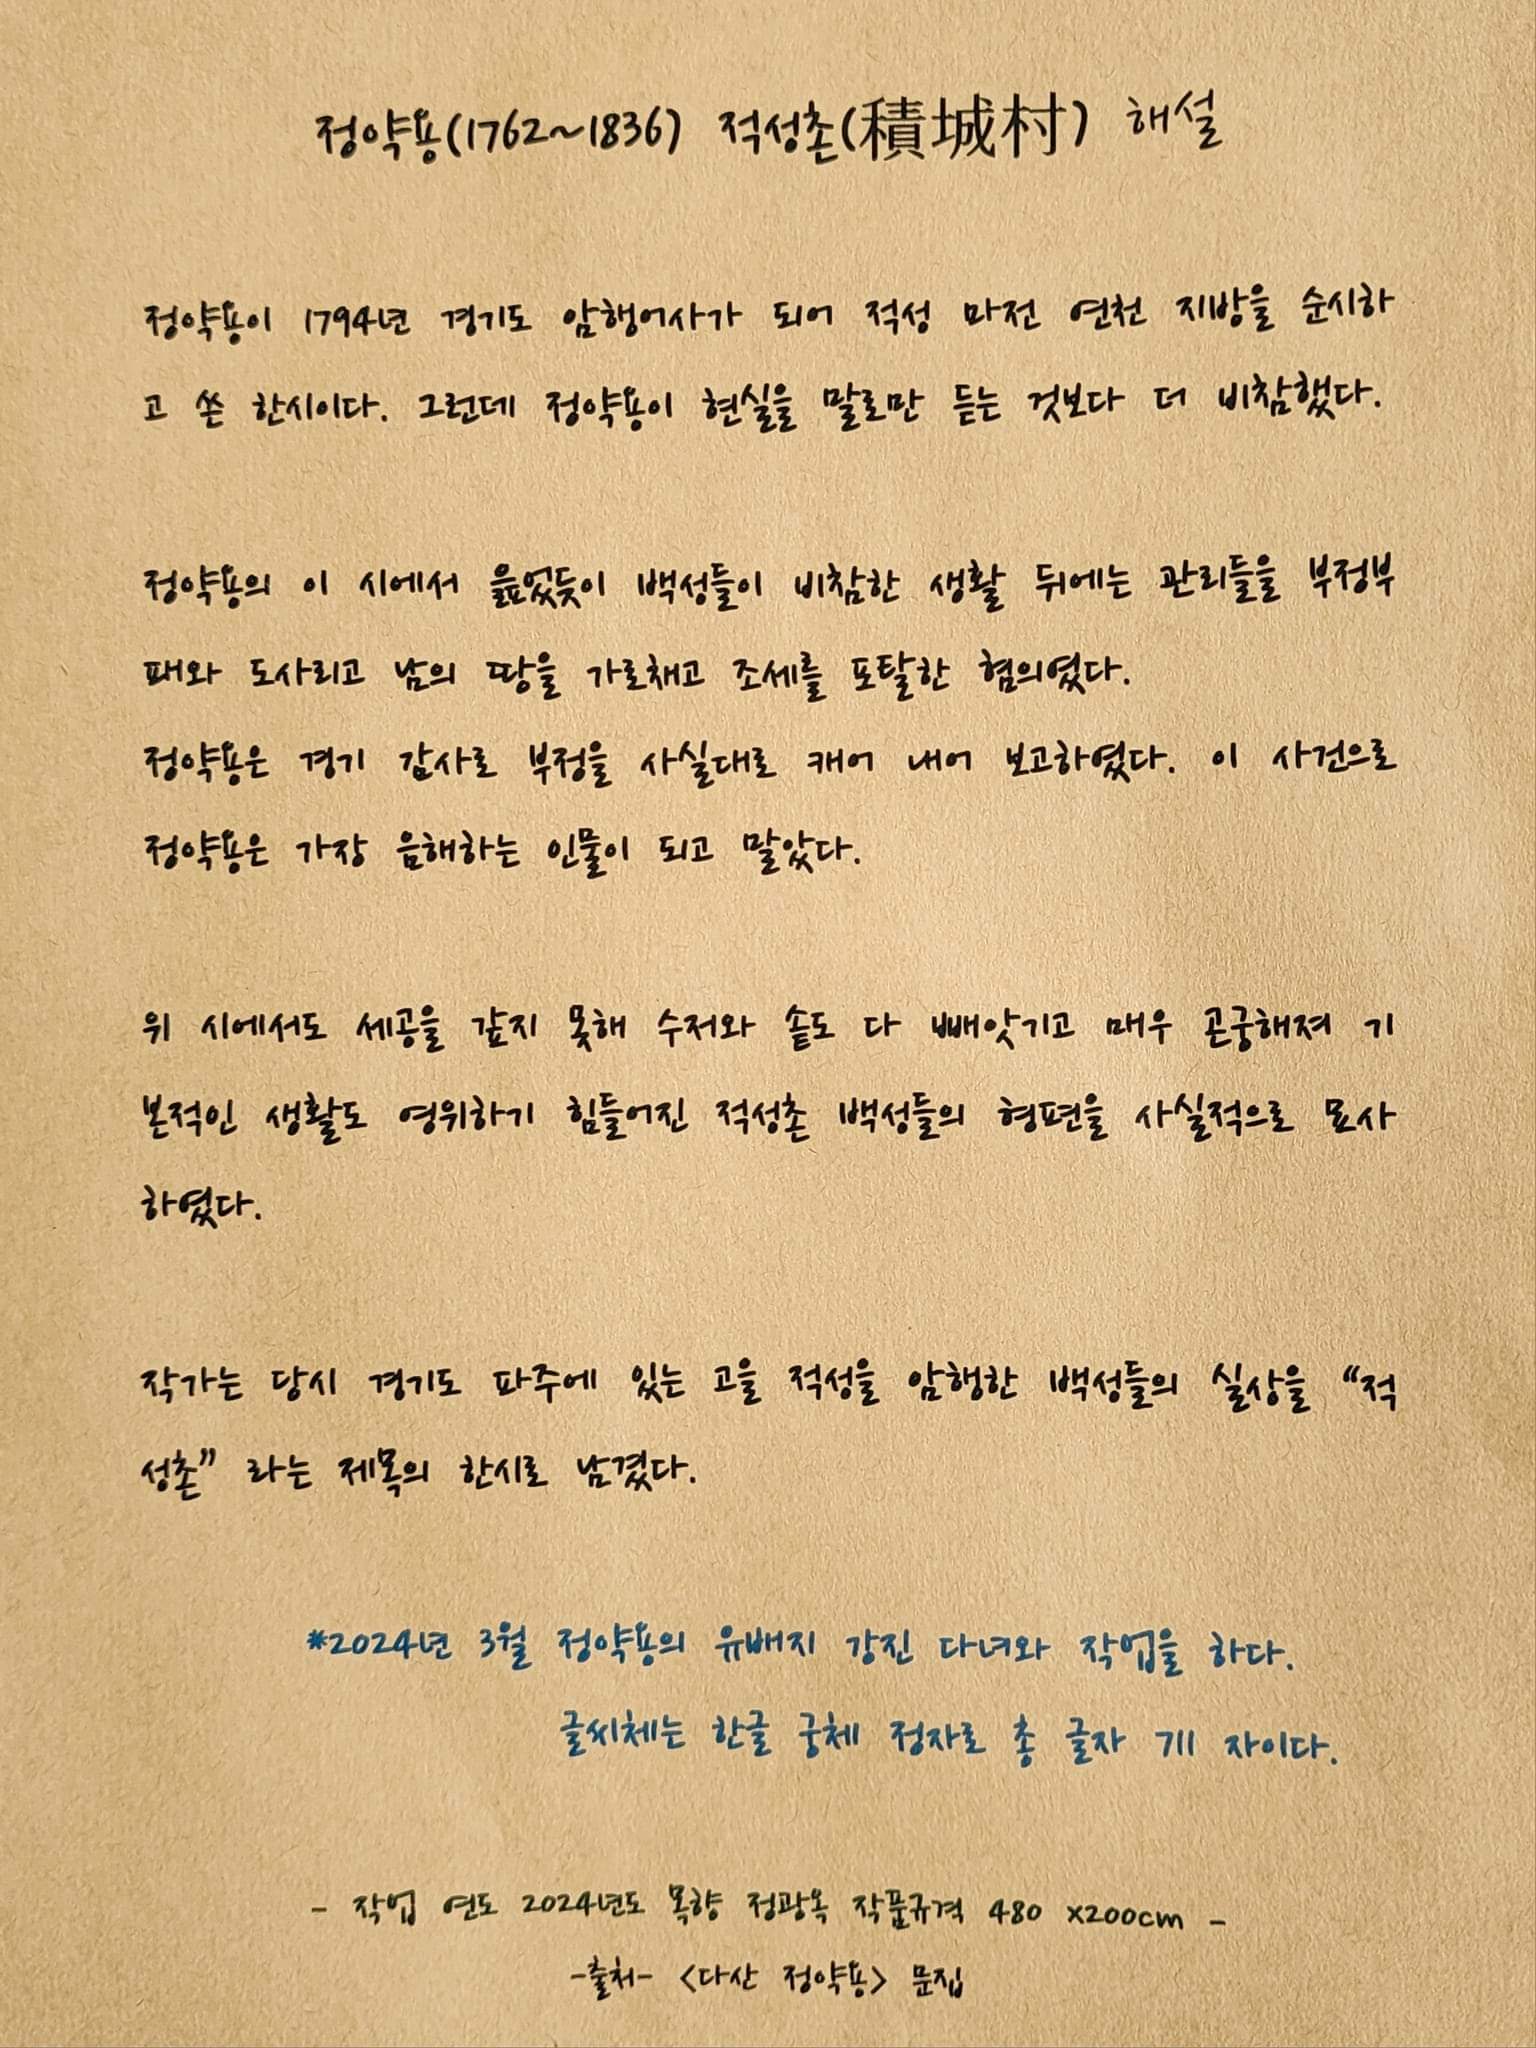 정약용(1762~1836) 적성촌(積城村) 해설
정약용이 1794년 경기도 암행어사가 되어 적성 마전 연천 지방을 순시하
고 쓴 한시이다. 그런데 정약용이 현실을 말로만 듣는 것보다 더 비참했다.
정약용의 이 시에서 읊었듯이 백성들이 비참한 생활 뒤에는 관리들을 부정부
패와 도사리고 남의 땅을 가로채고 조세를 포탈한 혐의였다.
정약용은 경기 감사로 부정을 사실대로 캐어 내어 보고하였다. 이 사건으로
정약용은 가장 음해하는 인물이 되고 말았다.
위 시에서도 세공을 갚지 못해 수저와 솥도 다 빼앗기고 매우 곤궁해져 기
본적인 생활도 영위하기 힘들어진 적성촌 백성들의 형편을 사실적으로 묘사
하였다.
작가는 당시 경기도 파주에 있는 고을 적성을 암행한 백성들의 실상을 “적
성촌” 라는 제목의 한시로 남겼다.
*2024년 3월 정약용의 유배지 강진 다녀와 작업을 하다.
글씨체는 한글 궁체 정자로 총 글자 711 자이다.
- 작업 연도 2024년도 목향 정광옥 작품규격 480 x200cm -
-출처- <다산 정약용> 문집